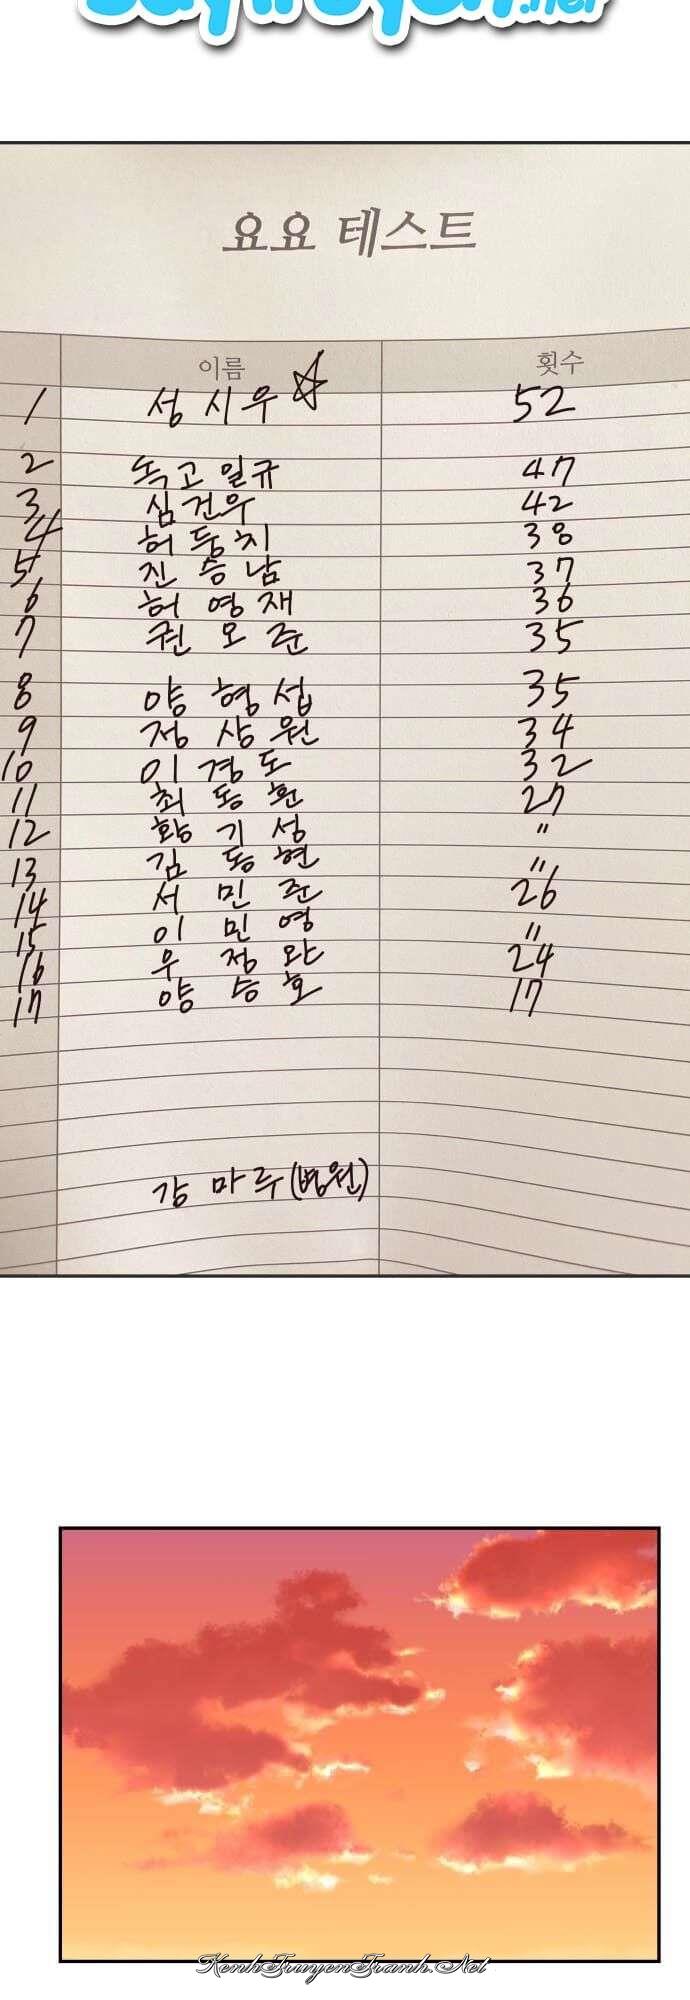 요요 테스트
이름 횟수
1 성시우☆ 52
2 독고일규 47
3 심건우 42
4 허둥치 38
5 진승남 37
6 허영재 36
7 권오준 35
8 양형섭 35
9 정상원 34
10 이경도 32
11 최동환 27
12 황기성 〃
13 김동현 〃
14 서민준 26
15 이민영 〃
16 우정완 24
17 양승호 17
강마루(병원)
KenhTruyenTranh.Net